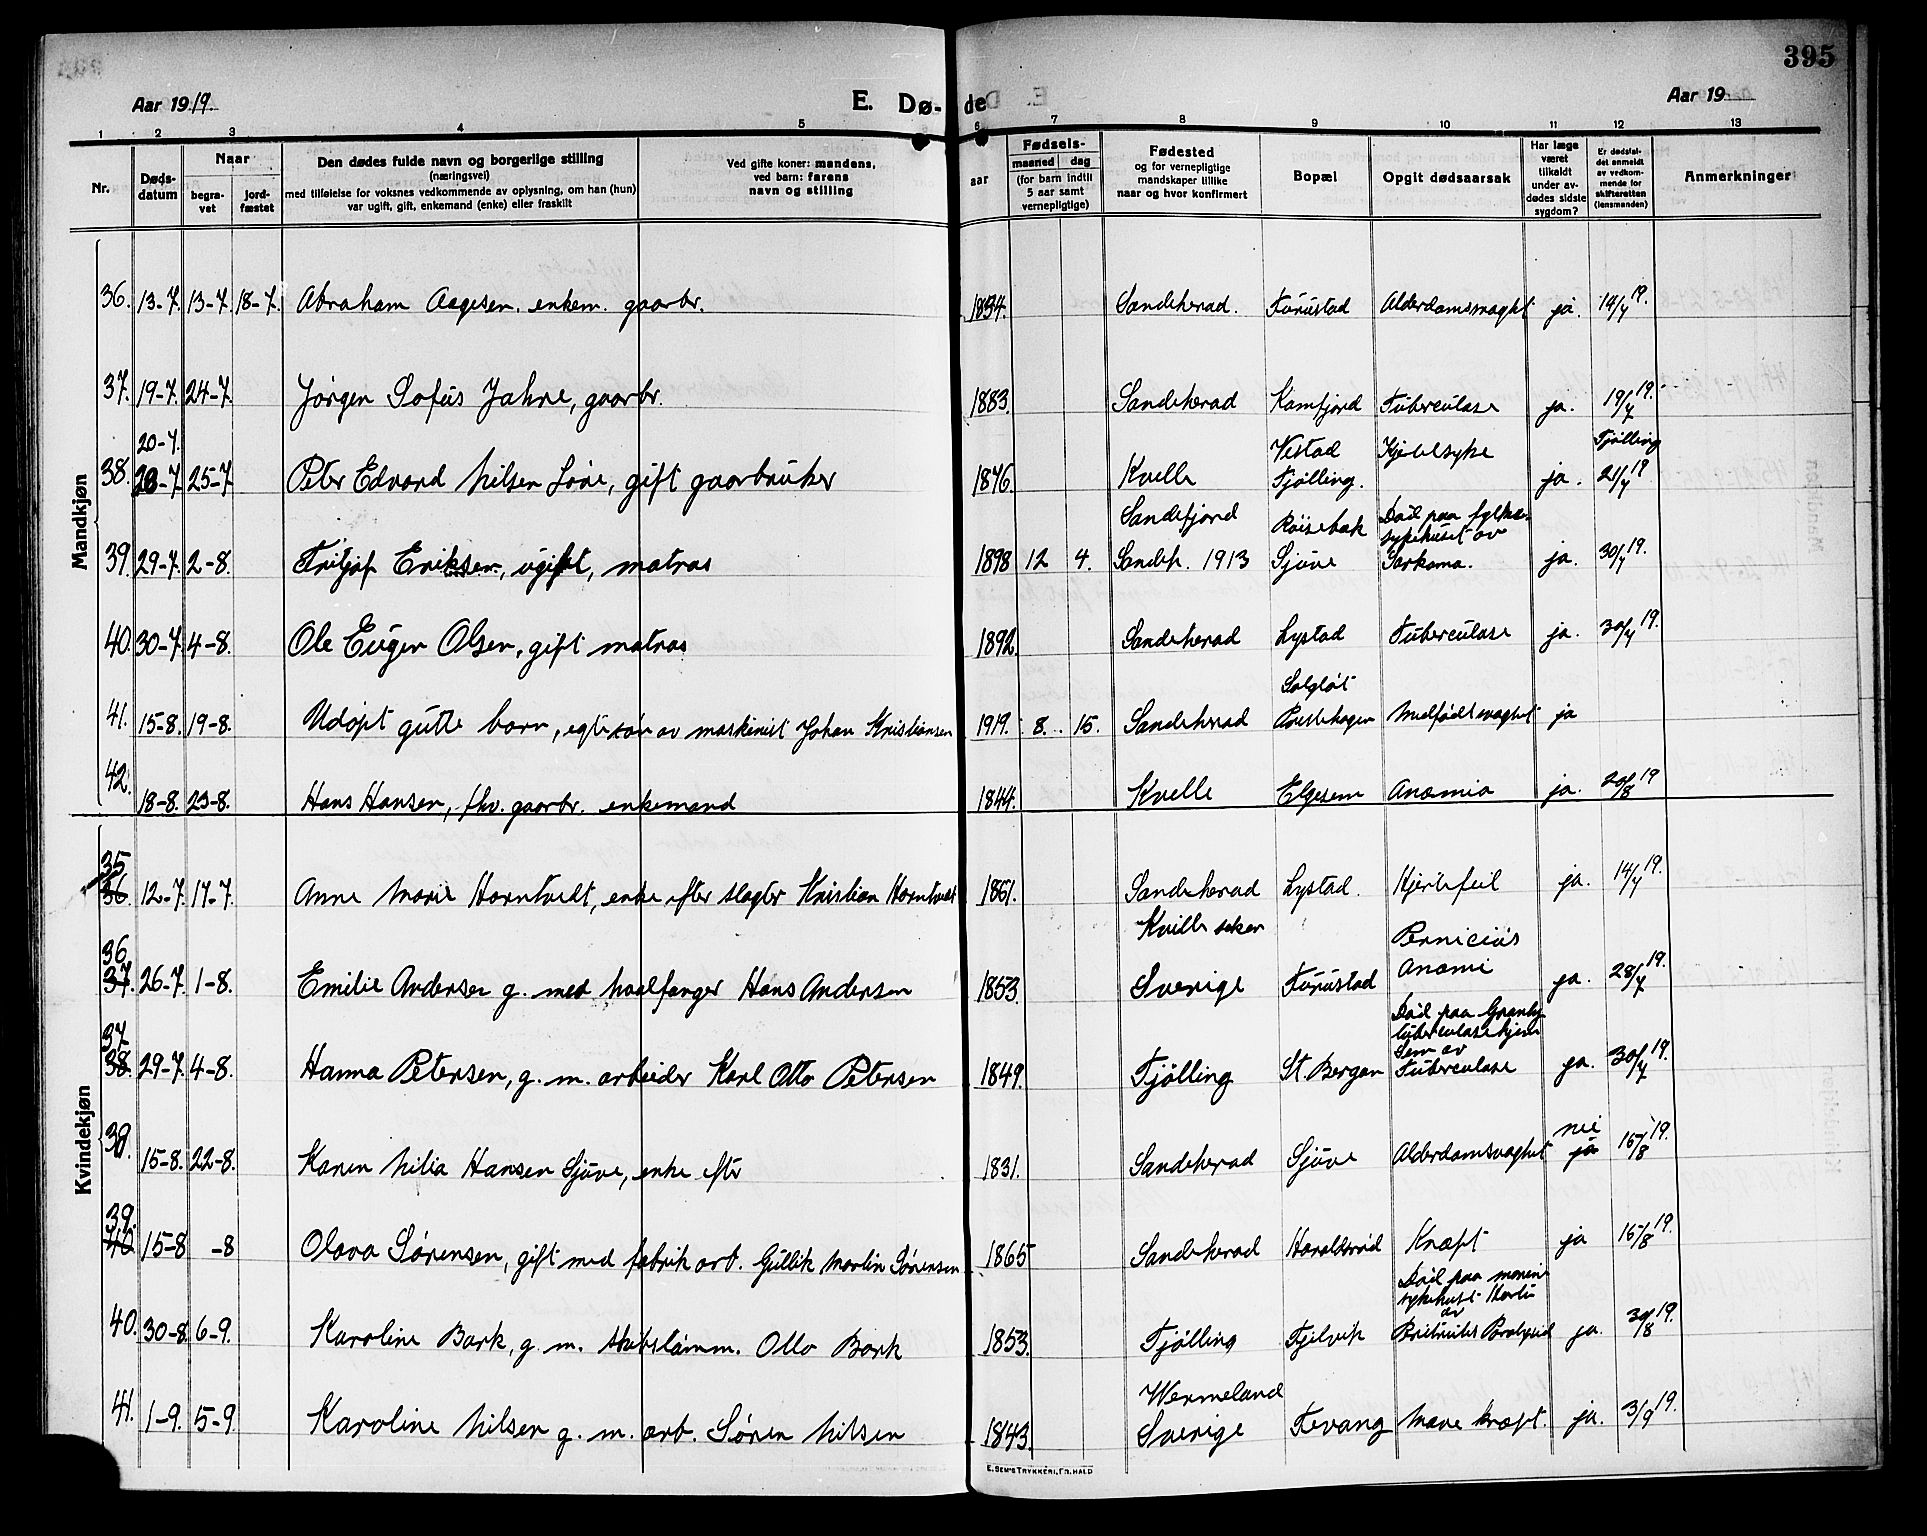 395
Aar 1919.
E. Dø-de
Aar 19
1 2 3 4 5 6 7 8 9 10 11 12 13
Nr.
Døds-
datum
Naar
begra-
vet
jord-
fæstet
Den dødes fulde navn og borgerlige stilling
(næringsvei)
med tilføielse for voksnes vedkommende av oplysning, om han (hun)
var ugift, gift, enkemand (enke) eller fraskilt
Ved gifte koner: mandens,
ved barn: farens
navn og stilling
aar
Fødsels-
maaned dag
(for barn indtil
5 aar samt
vernepligtige)
Fødested
og for vernepligtige
mandskaper tillike
naar og hvor konfirmert
Bopæl
Opgit dødsaarsak
Har læge
været
tilkaldt
under av-
dødes sidste
sygdom?
Er dødsfal-
det anmeldt
av vedkom-
mende for
skifteretten
(lensmanden)
Anmerkninger
Mandkjøn
36. 13-7. 13-7. 18-7. Abraham Aagesen. enkem. gaarbr. 1834. Sandeherad. Furustad Alderdomsvaghet ja. 14/7 19.
37. 19-7. 24-7. Jørgen Sofus Jahre, gaarbr. 1883. Sandeherad Kamfjord Tuberculose ja. 19/7 19.
20-7. Vestad Hjertesyke Tjølling
38. 20-7. 25-7. Peter Edvard Nilsen Løve, gift gaarbruker 1846. Kvelle Tjølling. ja. 21/7 19
Sandefjord Røisebak Død paa fylkes-
sykehuset av
39. 29-7. 2-8. Fritjof Eriksen, ugift, matros 1898 12 4. Sandeh. 1913 Sjuve Sarkoma. ja. 30/7 19.
40. 30-7. 4-8. Ole Eugen Olsen, gift matros 1892. Sandeherad Lystad Tuberculose ja. 30/7 19.
Solgløt
41. 15-8. 19-8. Udøpt gutte barn, egte søn av maskinist Johan Kristiansen 1919. 8. 15. Sandeherad Prestehagen Medfødt svaghet ja
42. 18-8. 23-8. Hans Hansen, fhv. gaarbr. enkemand 1844. Kvelle Elgesem Anæmia ja. 20/8 19
Kvindekjøn
35
36. 12-7. 17-7. Anne Marie Horntvedt, enke efter slagter Kristian Horntvedt 1861. Sandeherad Lystad. Hjertefeil ja. 14/7 19.
36 Kville Perniciøs
37. 26-7. 1-8. Emilie Andersen g. med hvalfanger Hans Andersen 1853. Sverige Furustad Anæmi ja. 28/7 19.
37 Død paa Granly
tuberculosehjem
Sem av
38. 29-7. 4-8. Hanna Petersen, g. m. arbeider Karl Otto Petersen 1849. Tjølling St. Bergan Tuberculose ja. 30/7 19.
nei
38. 15-8. 22-8. Karen Nilia Hansen Sjuve, enke efter 1831. Sandeherad Sjuve Alderdomsvaghet ja 15/8 19.
39.
40 15-8 -8 Olava Sørensen, gift med fabrik arb. Gullik Martin Sørensen 1865 Sandeherad Haraldsrød Kræft ja 15/8 19.
Død paa
av
40. 30-8. 6-9. Karoline Bark, g. m. skibstømm. Otto Bark 1853. Tjølling Fjelvik ja. 30/8 19.
Wermeland
41. 1-9. 5-9. Karoline Nilsen g. m. arb. Søren Nilsen 1843. Sverige Fevang Mave kræft. ja. 3/9 19.
E. SEM'S TRYKKERI, FR.HALD